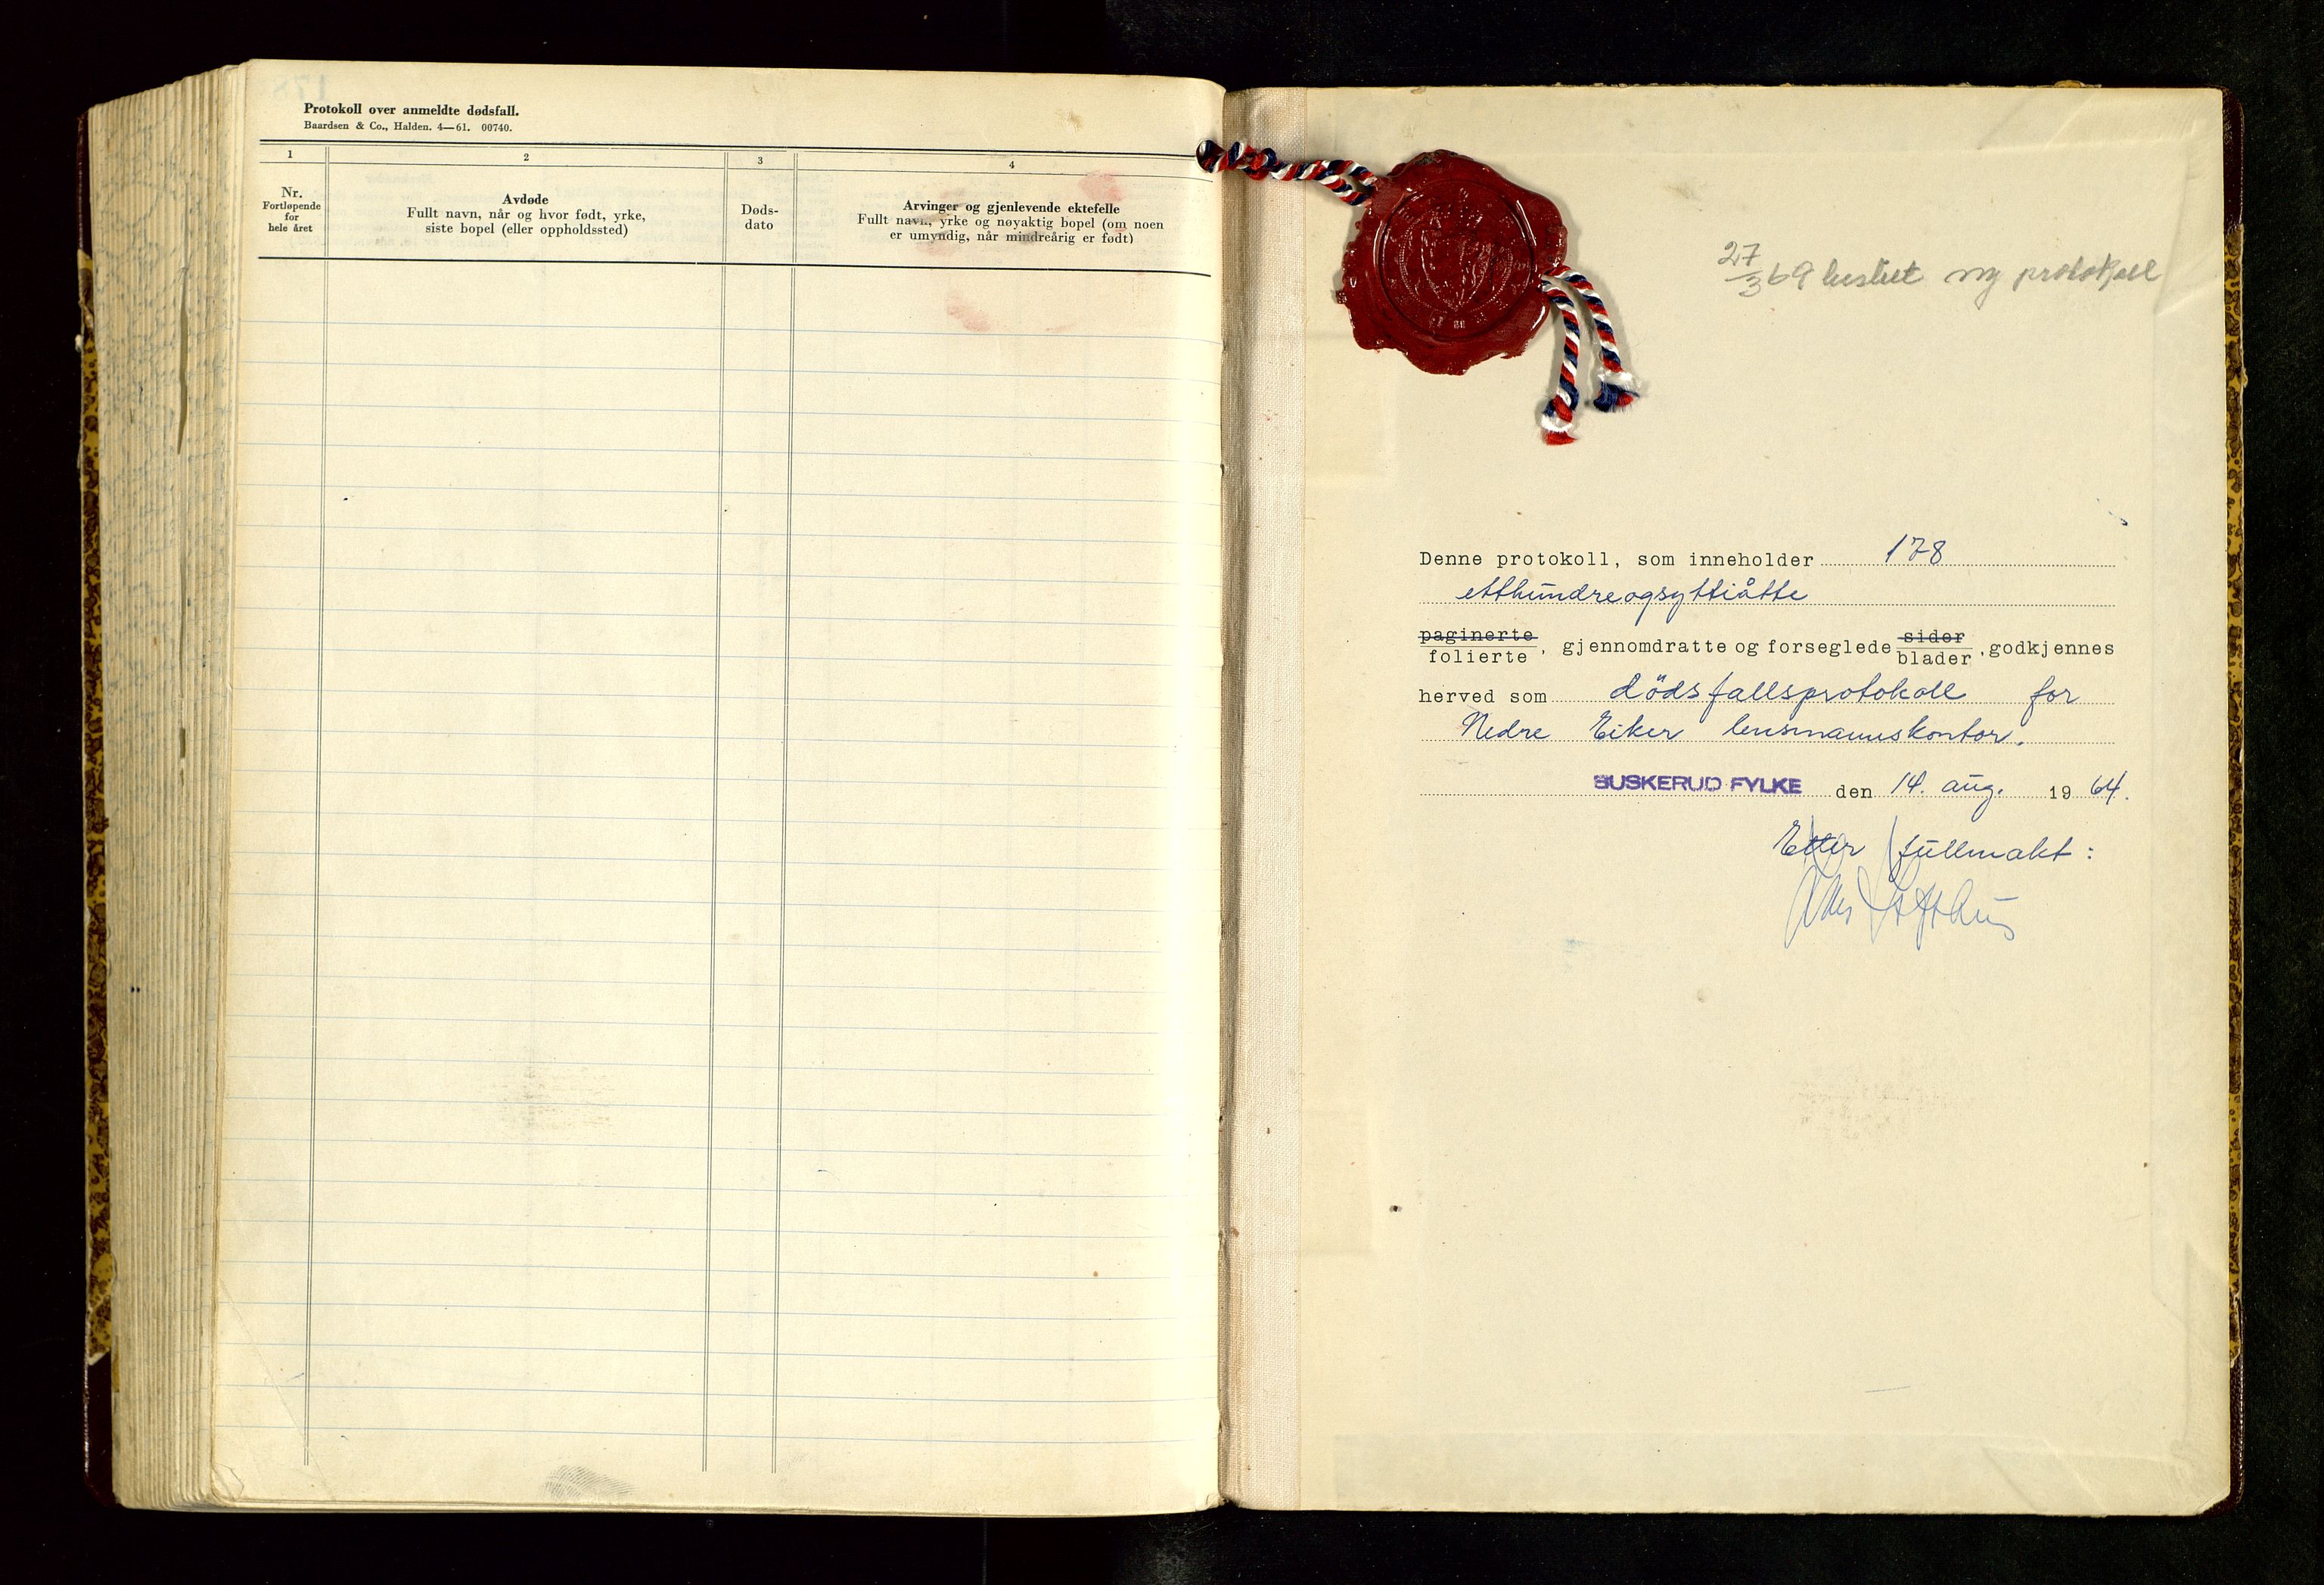 Protokoll over anmeldte dødsfall.
Baardsen & Co., Halden. 4—61. 00740.
1
2
3
4
Nr.
Fortløpende
for
hele året
Avdøde
Fullt navn, når og hvor født, yrke,
siste bopel (eller oppholdssted)
Døds-
dato
Arvinger og gjenlevende ektefelle
Fullt navn, yrke og nøyaktig bopel (om noen
er umyndig, når mindreårig er født)
27/3 69 ny protokoll
Denne protokoll, som inneholder 178
etthundreogsyttiåtte
paginerte
folierte, gjennomdratte og forseglede sider
blader, godkjennes
herved som dödsfallsprotokoll for
Nedre Eiker lensmannskontor.
BUSKERUD FYLKE den 14. aug. 1964.
Etter fullmakt: